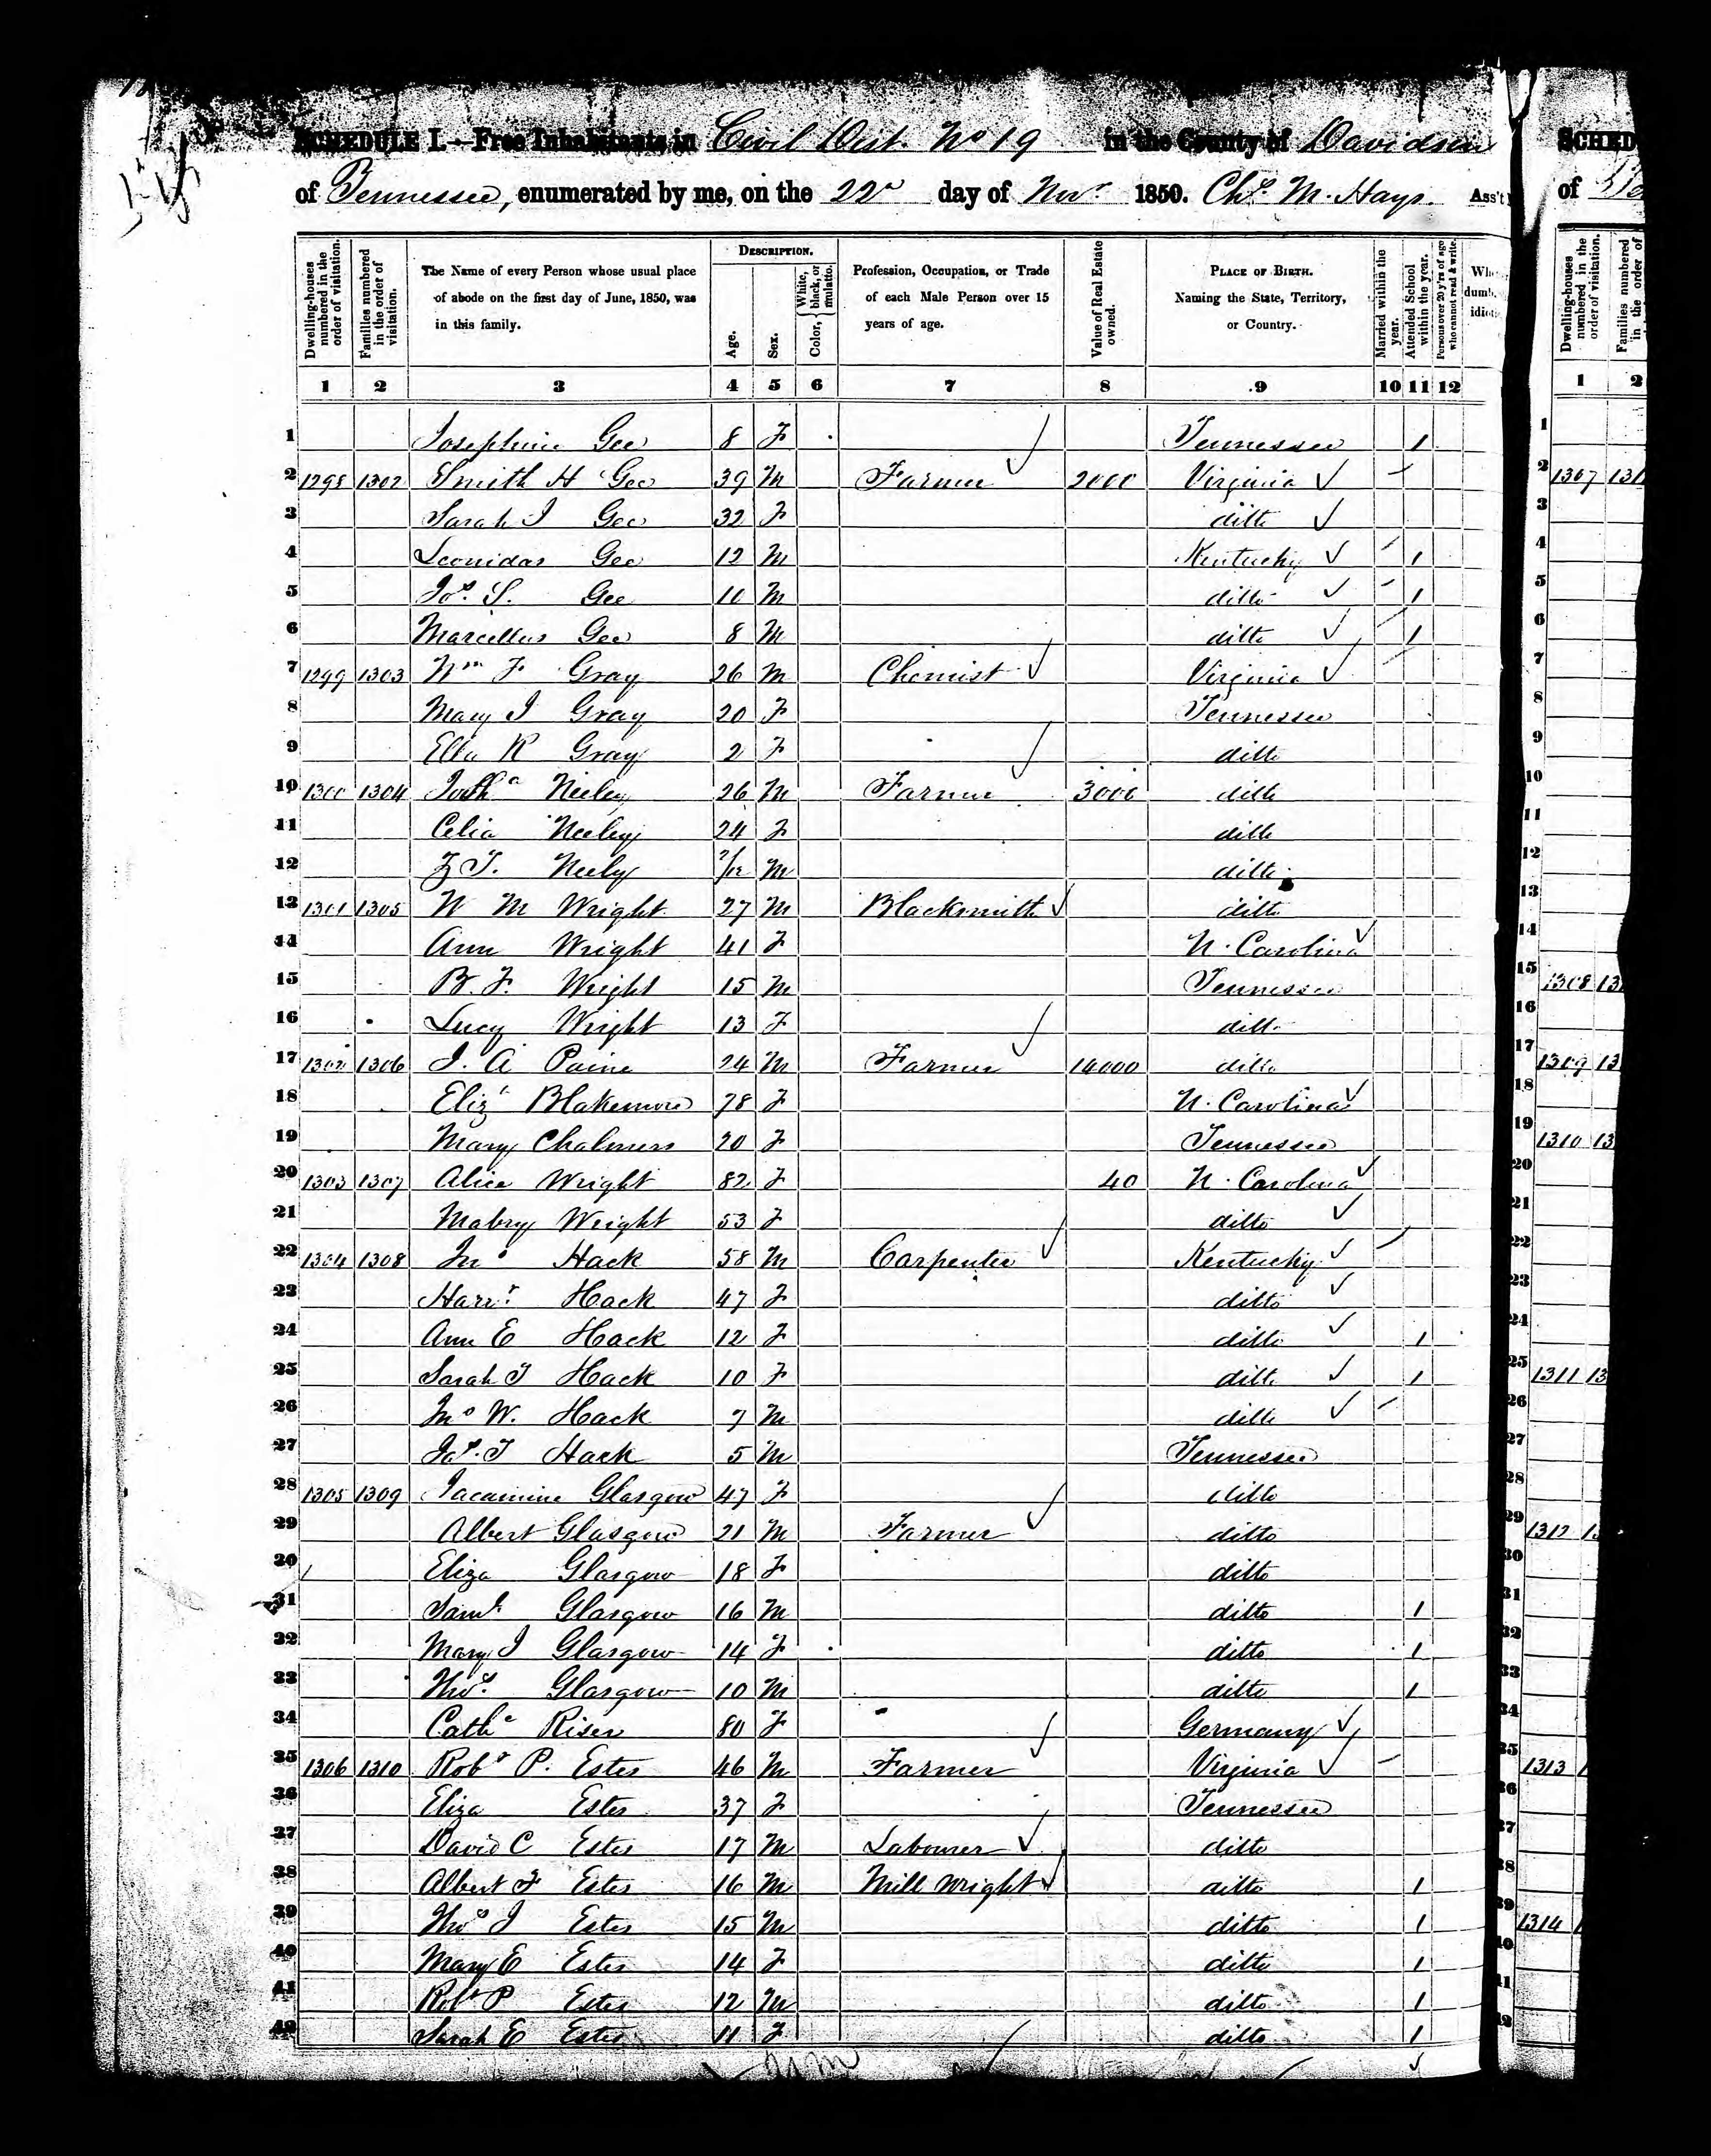 SCHEDULE I.—Free Inhabitants in Civil Dist. No 19 in the County of Davidson
of Tennessee, enumerated by me, on the 22d day of Novr 1850. Chs. M. Hays. Ass't
Dwelling-houses numbered in the order of visitation. Families numbered in the order of visitation. The Name of every Person whose usual place of abode on the first day of June, 1850, was in this family. DESCRIPTION. Age. Sex. Color, White, black, or mulatto. Profession, Occupation, or Trade of each Male Person over 15 years of age. Value of Real Estate owned. PLACE OF BIRTH. Naming the State, Territory, or Country. Married within the year. Attended School within the year. Persons over 20 y'rs of age who cannot read & write.
1 2 3 4 5 6 7 8 9 10 11 12
1 Josephine Gee 8 F Tennessee 1
2 1298 1302 Smith H Gee 39 M Farmer 2000 Virginia
3 Sarah J Gee 32 F ditto
4 Leonidas Gee 12 M Kentucky 1
5 Jos. S. Gee 10 M ditto 1
6 Marcellus Gee 8 M ditto 1
7 1299 1303 Wm F Gray 26 M Chemist Virginia
8 Mary J Gray 20 F Tennessee
9 Ella R Gray 2 F ditto
10 1300 1304 Neeley 26 M Farmer 3000 ditto
11 Celia Neeley 24 F ditto
12 Z T. Neely M ditto
13 1301 1305 W M Wright 27 M Blacksmith ditto
14 Ann Wright 41 F N. Carolina
15 B. F. Wright 15 M Tennessee
16 Lucy Wright 13 F ditto
17 1302 1306 J. A Paine 24 M Farmer 14000 ditto
18 Elizh Blakemore 78 F N. Carolina
19 Mary Chalmers 20 F Tennessee
20 1303 1307 Alice Wright 82 F 40 N. Carolina
21 Mabry Wright 53 F ditto
22 1304 1308 Jno Hack 58 M Carpenter Kentucky
23 Harrt Hack 47 F ditto
24 Ann E Hack 12 F ditto 1
25 Sarah J Hack 10 F ditto 1
26 Jno W. Hack 7 M ditto
27 Jas. T Hack 5 M Tennessee
28 1305 1309 Jacamine Glasgow 47 F ditto
29 Albert Glasgow 21 M Farmer ditto
30 Eliza Glasgow 18 F ditto
31 Saml Glasgow 16 M ditto 1
32 Mary J Glasgow 14 F ditto 1
33 Thos. Glasgow 10 M ditto 1
34 Cathe Riser 80 F Germany
35 1306 1310 Robt P. Estes 46 M Farmer Virginia
36 Eliza Estes 37 F Tennessee
37 David C Estes 17 M Labourer ditto
38 Albert F Estes 16 M Mill Wright ditto 1
39 Thos J Estes 15 M ditto 1
40 Mary E Estes 14 F ditto 1
41 Robt P Estes 12 M ditto 1
42 Sarah E Estes 11 F ditto 1
SCHED
of
Dwelling-houses numbered in the order of visitation. Families numbered in the order of
1 2
1307 131
1308 13
1309 13
1310 13
1311 13
1312 13
1313 1
1314 1